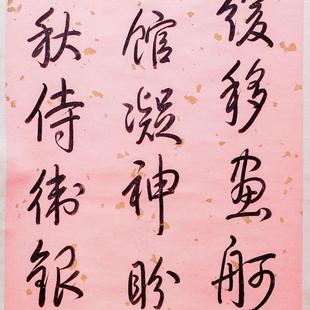 緩移畫舸
館凝神盼
秋侍衛銀